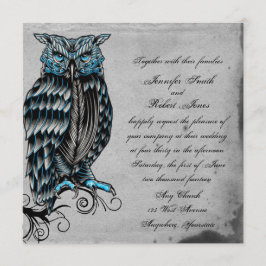 Together with their families
Jennifer Smith
and
Robert Jones
happily request the pleasure of
your company at their wedding
at four thirty in the afternoon
Saturday, the first of June
two thousand fourteen
Any Church
125 West Avenue
Anywhere, Yourstate